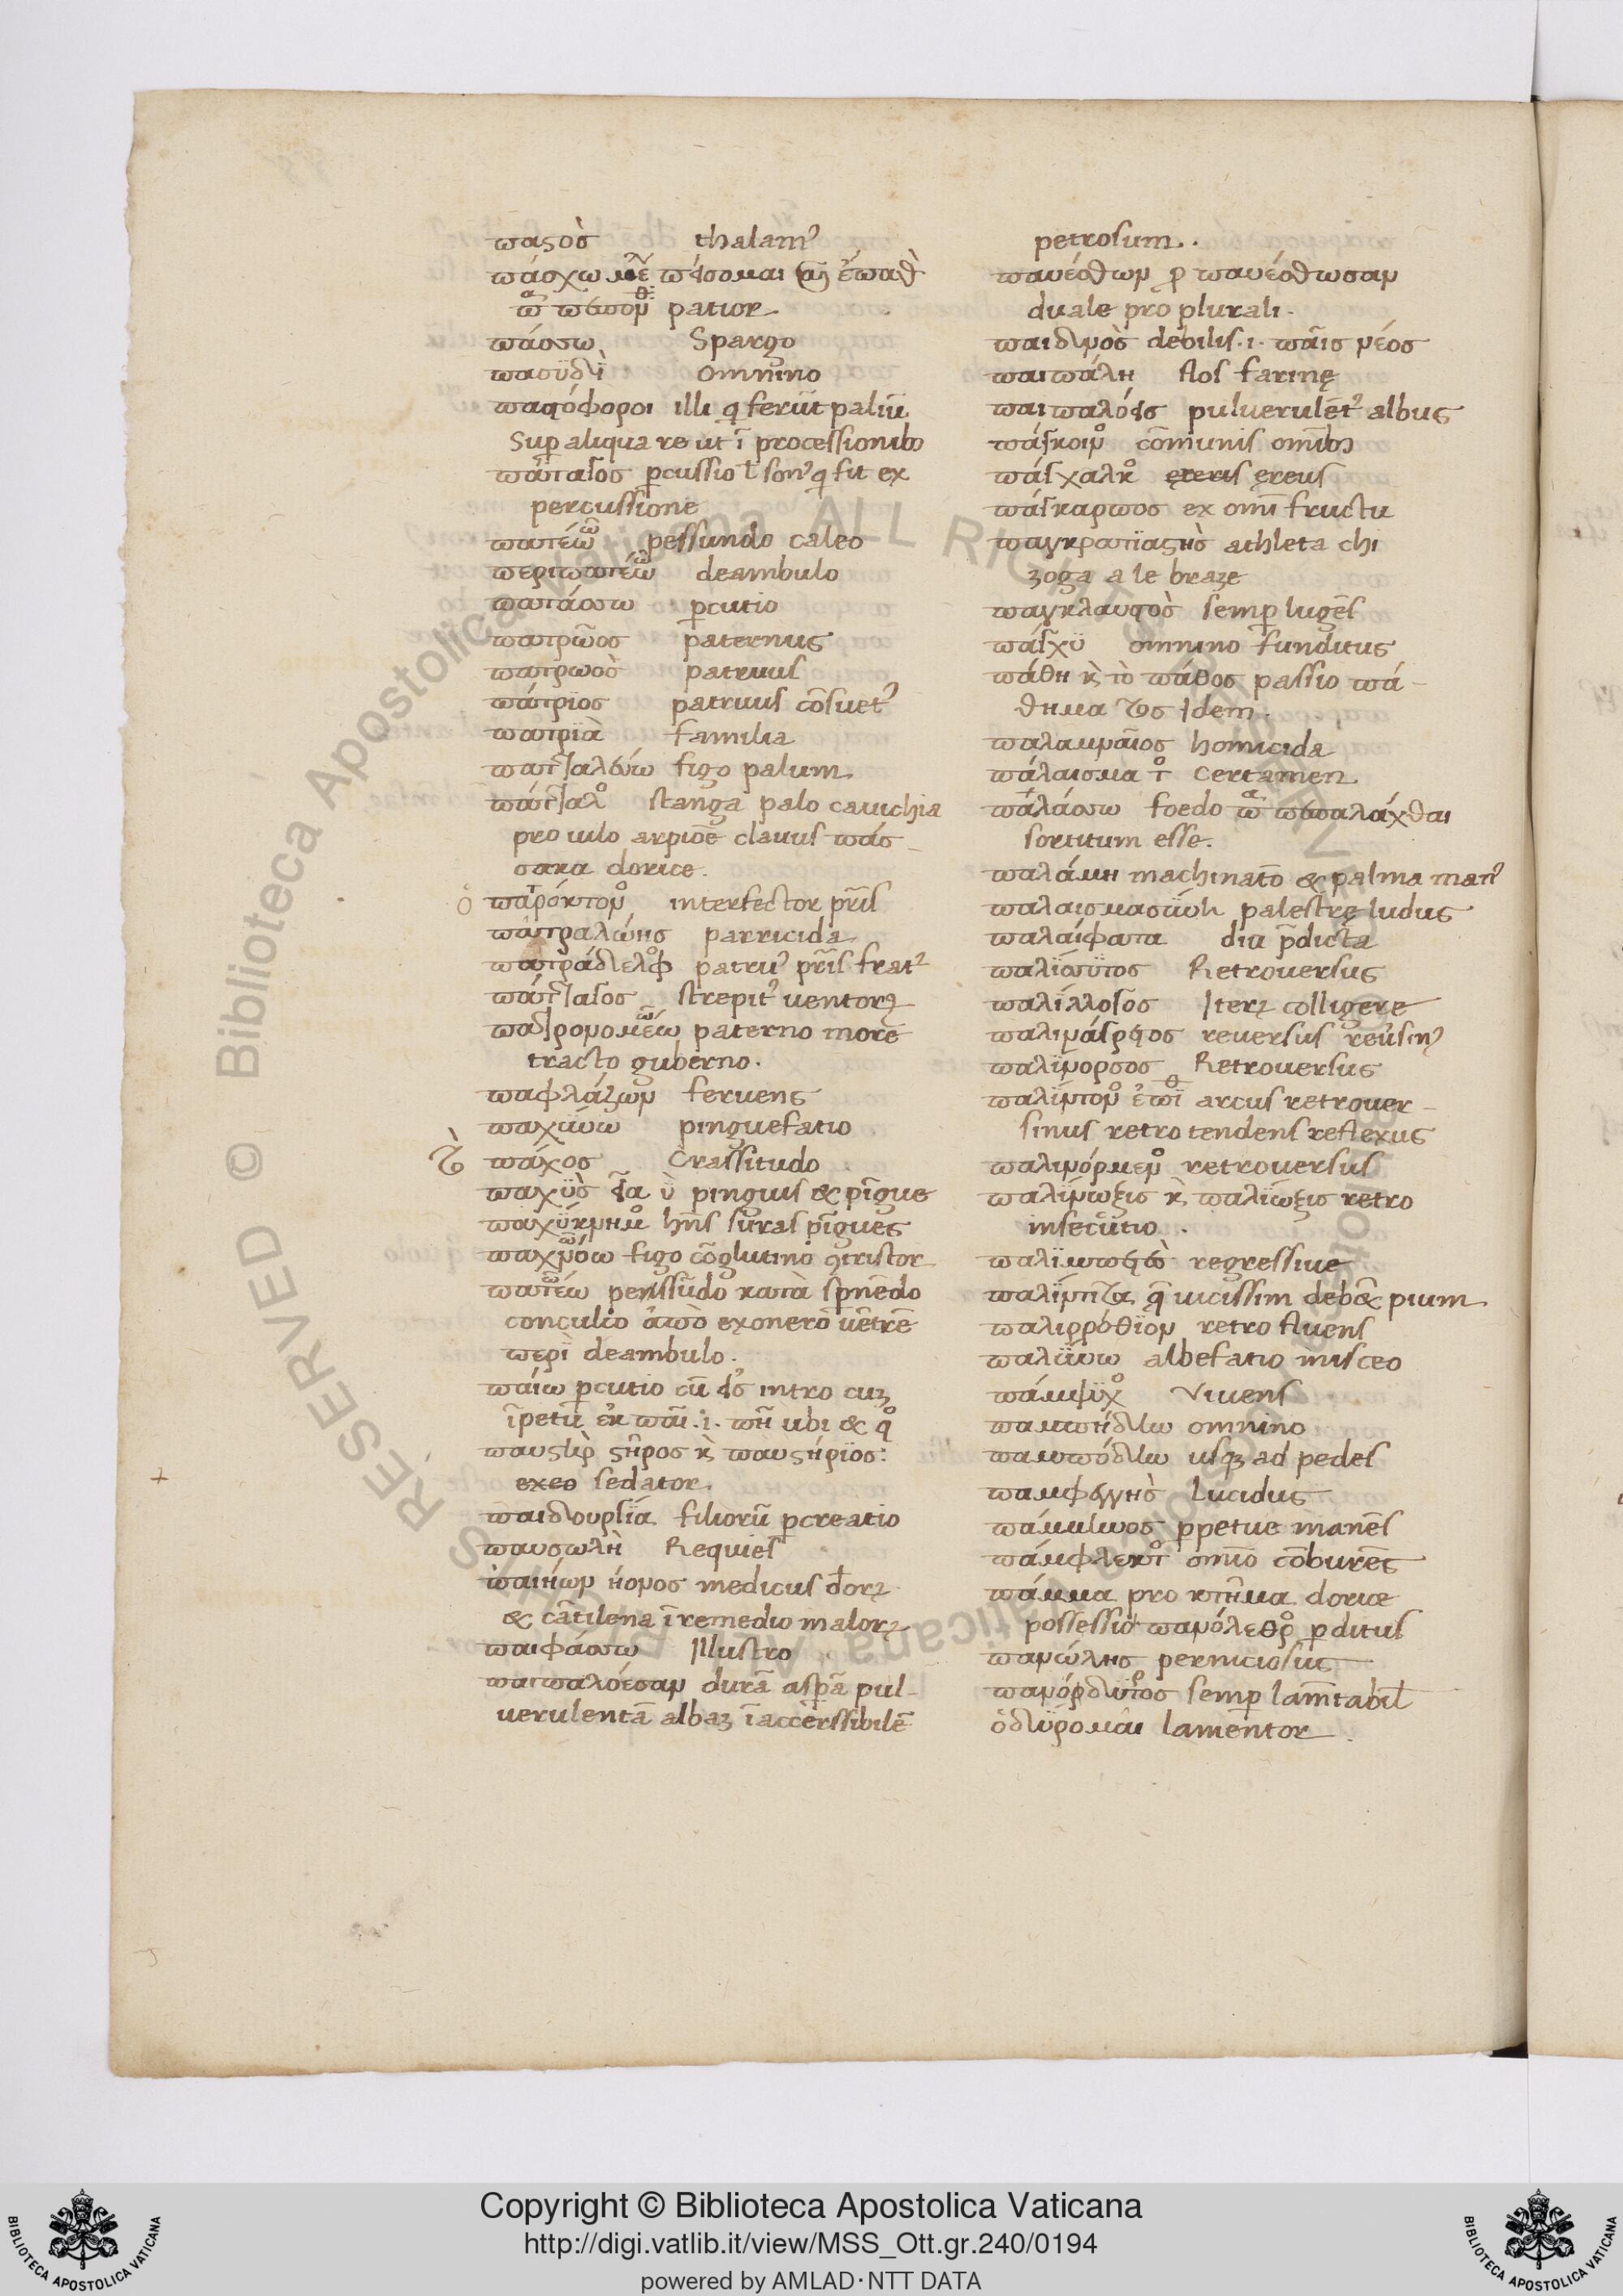 παςὸς thalamꝰ
πάσχω πείσομαι ἔπαθ
patior
πάσσω Spargo
πασϋδὶ omnino
παστόφοροι illi q ferūt paliū
Sup aliqua re ut ī processionibꝫ
πάταγος pcussio ł sonꝰ q fit ex
percussione
πατέω pessundo caleo
περιπατέω deambulo
πατάσσω pcutio
πατρῶος paternus
πατρωὸς patruus
πάτριος patruus cōsuetꝰ
πατριὰ familia
πατταλεύω figo palum
πάτταλο stanga palo cauichia
pro uulo arpioē clauus πάσ-
σακα dorice.
πατρόκτον interfector pr̄is
πατραλώης parricida
πατράδελφ patruꝰ pr̄is frat
πάταγος strepitꝰ uentoꝝ
πατρονομέω paterno more
tracto guberno.
παφλάζων feruens
παχύνω pinguefatio
τὸ πάχος Crassitudo
παχὺς εῖα ὺ pinguis & pīgue
παχύκνημ hn̄s suras pīgues
παχνόω figo cōglutino 9tristor
πατέω perssūdo κατὰ spnēdo
conculco ἀπὸ exonero uētrē
περὶ deambulo.
παίω pcutio cū εἰς intro cuꝫ
īpetu ἐκ παῖ .i. πῆ ubi & q
παυςὴρ ςῆρος κ παυςήριος:
exeo sedator.
παιδουργία filiorū pcreatio
παυσωλὴ Requies
παιήων ήονος medicus deoꝝ
& cātilena ī remedio maloꝝ
παιφάσσω Illustro
παιπαλόεσαν durā aspā pul-
uerulentā albaꝫ īaccerssibilē
petrosum.
παυέσθων p παυέσθωσαν
duale pro plurali.
παιδνὸς debilis .i. παῖς νέος
παιπάλη flos farinę
παιπαλόεις puluerulētꝰ albus
πάγκοιν cōmunis omībꝫ
πάγχαλκ ęreus ęreus
πάγκαρπος ex omī fructu
παγκρατιαςὴς athleta chi
zoga a le braze
παγκλαυςὸς semp lugēs
πάγχυ omnino funditus
πάθη κ τὸ πάθος passio πά-
θημα τος Idem.
παλαμναῖος homicida
πάλαισμα τ Certamen
παλάσσω foedo πεπαλάχθαι
sortitum esse.
παλάμη machinatō & palma manꝰ
παλαισμοσύνη palestrę ludus
παλαίφατα diu p̄dicta
παλίσυτος Retrouersus
παλίλλογος Iteꝝ colligere
παλινάγρετος reuersus
παλίνορσος Retrouersus
παλίντον ἐπὶ arcus retrouer-
sinus retro tendens reflexus
παλινόρμεν retrouersus
παλίνωξις κ παλίωξις retro
insecutio.
παλιμπετὲς regressiue
παλίντιτα q uicissim debet pium
παλιρρόθιον retro fluens
παλύνω albefatio misceo
πάμψυχ Viuens
παμπήδην omnino
παμπόδην usqꝫ ad pedes
παμφεγγὴς Lucidus
πάμμονος ppetue manēs
πάμφλεκτ omīo cōburēs
πάμμα pro κτῆμα dorice
possessio πανόλεθρ pditus
πανώλης perniciosus
πανόρδυτος semp lamētabil
ὀδύρομαι lamentor
Copyright © Biblioteca Apostolica Vaticana
http://digi.vatlib.it/view/MSS_Ott.gr.240/0194
powered by AMLAD·NTT DATA